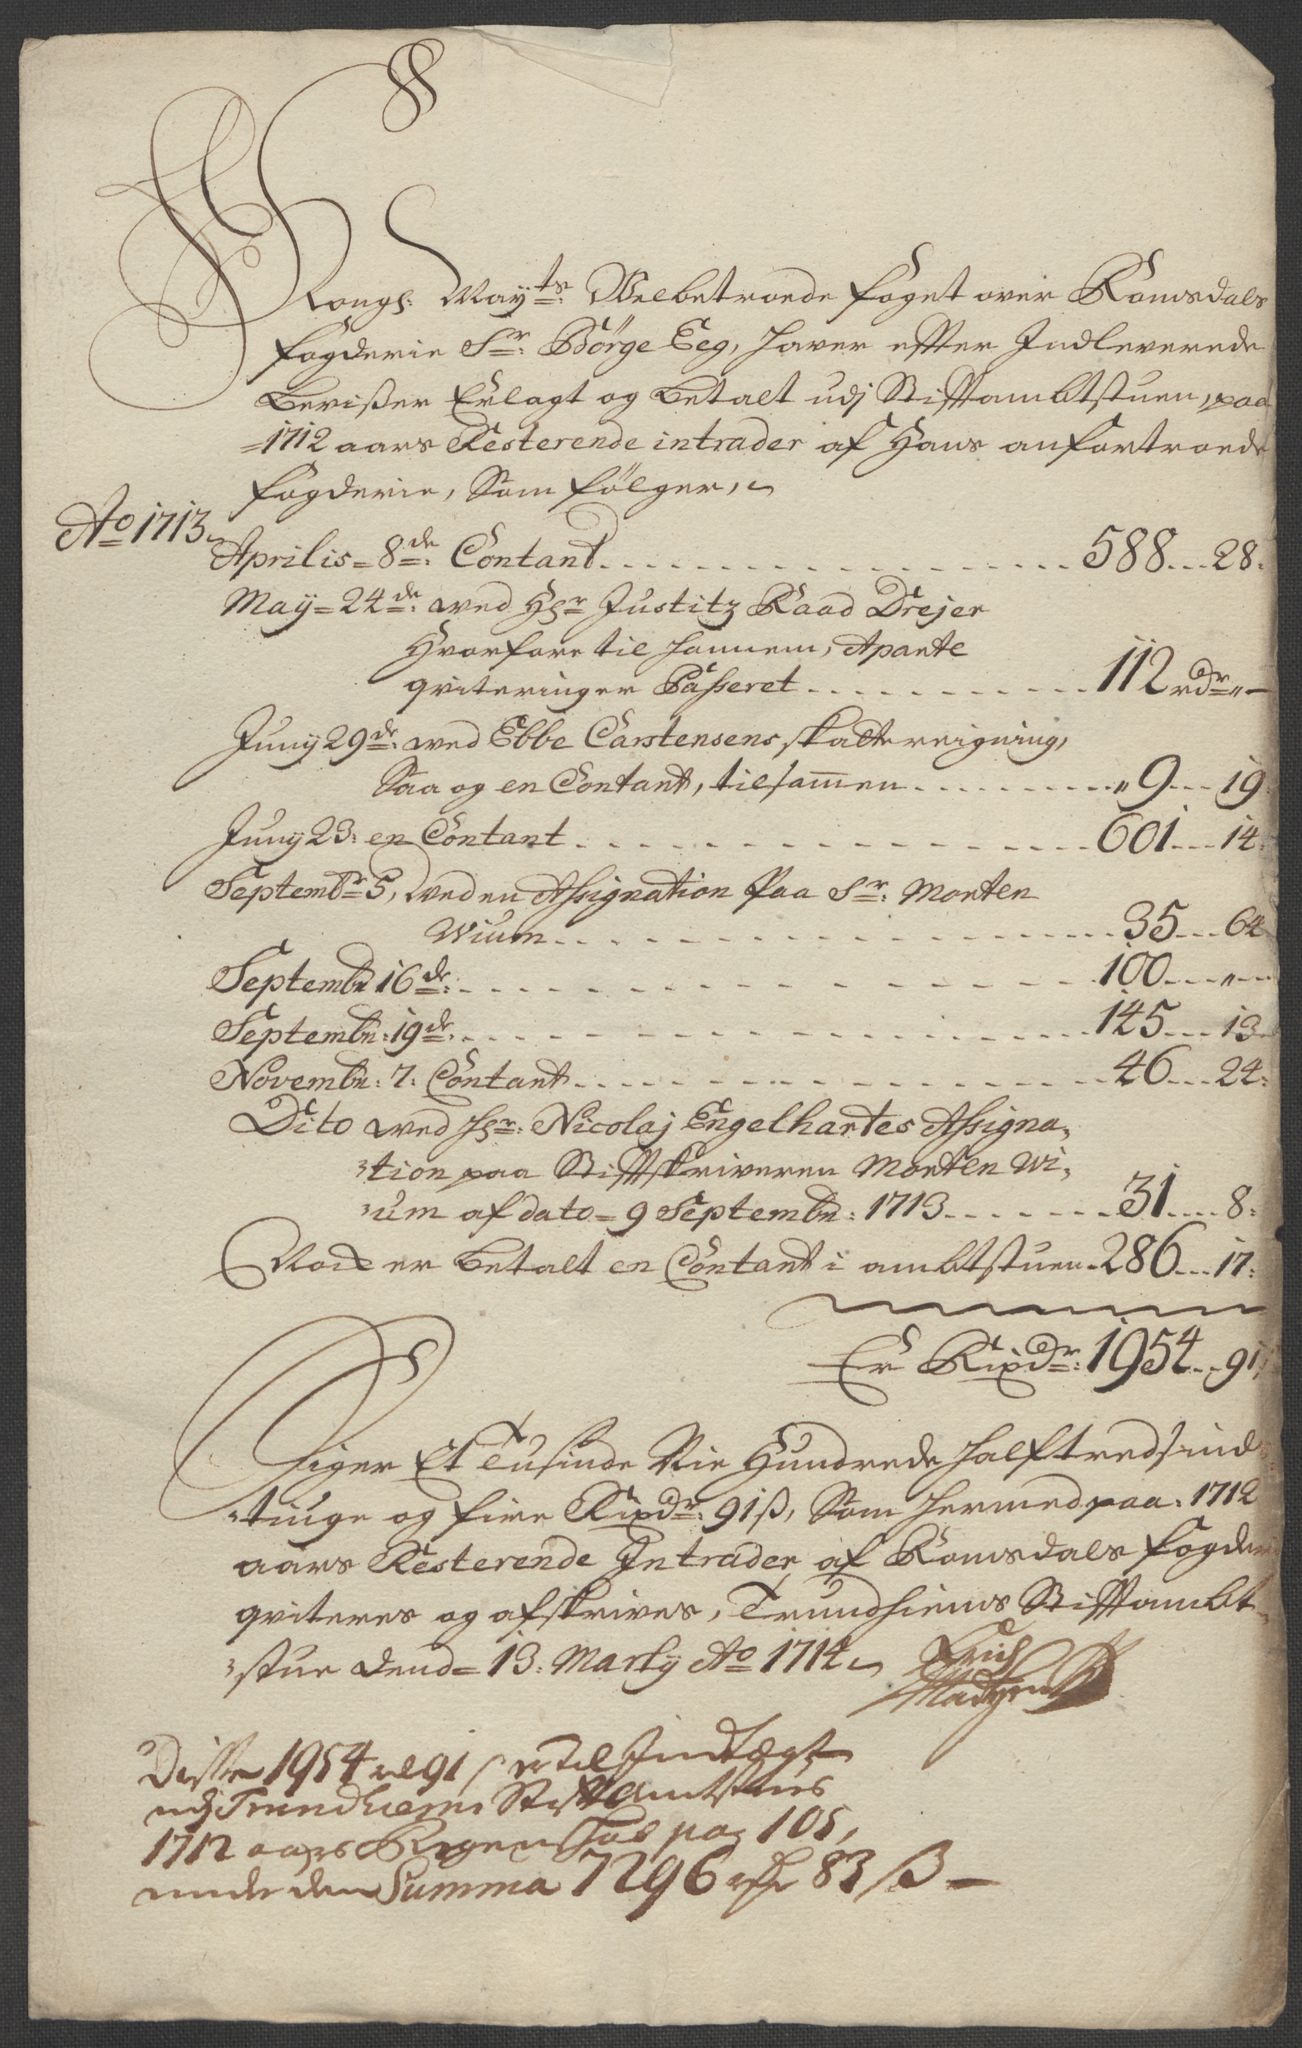 Kongl: May:ts Welbetroede foget over Romsdals
fogderie Sr: Børge Eeg, haver effter Indleverede
Bevißer Erlagt og betalt udj Stifftambtstuen, paa
1712 aars Resterende intrader af Hans anfortroede
fogderie, Som følger,
Ao 1713
Aprilis 8de: Contant 588 28
May 24de: wed Hr: Justitz Raad Drejer
Hvorfore til hannem, Aparte
qviteringer Passeret 112 rdr „
Juny 29de: wed Ebbe Carstensens skatte reigning,
Saa og en Contant, tilsamen 9 19
Juny 23: en Contant 601 14
Septembr 5, wed en Assignation Paa Sr: Morten
Wium 35 64
Septembr 16de: 100 „
Septembr: 19de: 145 13
Novembr: 7: Contant 46 24
Dito wed Hr: Nicolaj Engelhartes Assigna-
tion paa Stifftskriveren Morten Wi-
um af dato 9 Septembr: 1713 31 8
Nock er betalt en Contant i ambtstuen 286 17
Er Rixdr: 1954 91
Siger Et Tusinde Nie Hundrede halftredsinds
tiuge og fire Rixdr: 91 ß, Som hermed paa 1712
aars Resterende Intrader, af Romsdals fogderi
qviteres og afskrives, Trundhiems Stifftambt
stue Dend 13: Marty Ao 1714
Disse 1954 rd 91 s er til Indtægt
udj Trundhiems Stifft Amtstues
1712 aars Regenskab pag 105,
under den Summa 7296 rdr 83 ß